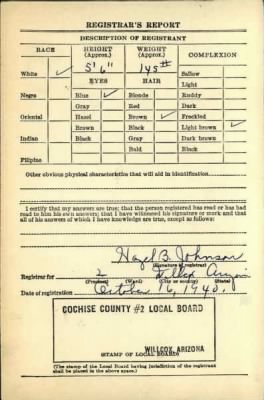 REGISTRAR'S REPORT
DESCRIPTION OF REGISTRANT
RACE HEIGHT (Approx.) WEIGHT (Approx.) COMPLEXION
White ✓ 5' 6" 145# Sallow
EYES HAIR Light
Negro Blue ✓ Blonde Ruddy
Gray Red Dark
Oriental Hazel Brown ✓ Freckled
Brown Black Light brown ✓
Indian Black Gray Dark brown
Bald Black
Filipino
Other obvious physical characteristics that will aid in identification
I certify that my answers are true; that the person registered has read or has had
read to him his own answers; that I have witnessed his signature or mark and that
all of his answers of which I have knowledge are true, except as follows:
Hazel B. Johnson
(Signature of registrar)
Registrar for 2 Willcox Arizona
(Precinct) (Ward) (City or county) (State)
Date of registration October 16, 1940.
COCHISE COUNTY #2 LOCAL BOARD
WILLCOX, ARIZONA
(STAMP OF LOCAL BOARD)
(The stamp of the Local Board having jurisdiction of the registrant
shall be placed in the above space.)